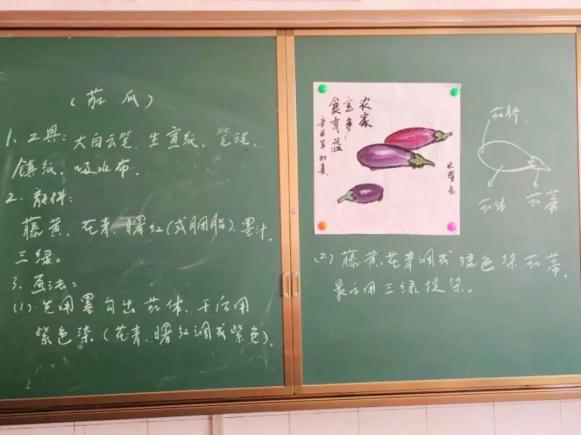 （茄瓜）
1. 工具：大白云笔、生宣纸、笔毡、
镇纸、吸水布。
2. 颜料：
藤黄、花青、曙红（或胭脂）、墨汁、
三绿。
3. 画法：
(1) 先用墨勾出茄体，干后用
紫色染（花青、曙红调成紫色）。
农家
宝多
食有益
茄柄
茄体
茄蒂
(2) 藤黄、花青调成绿色染茄蒂，
最后用三绿提染。